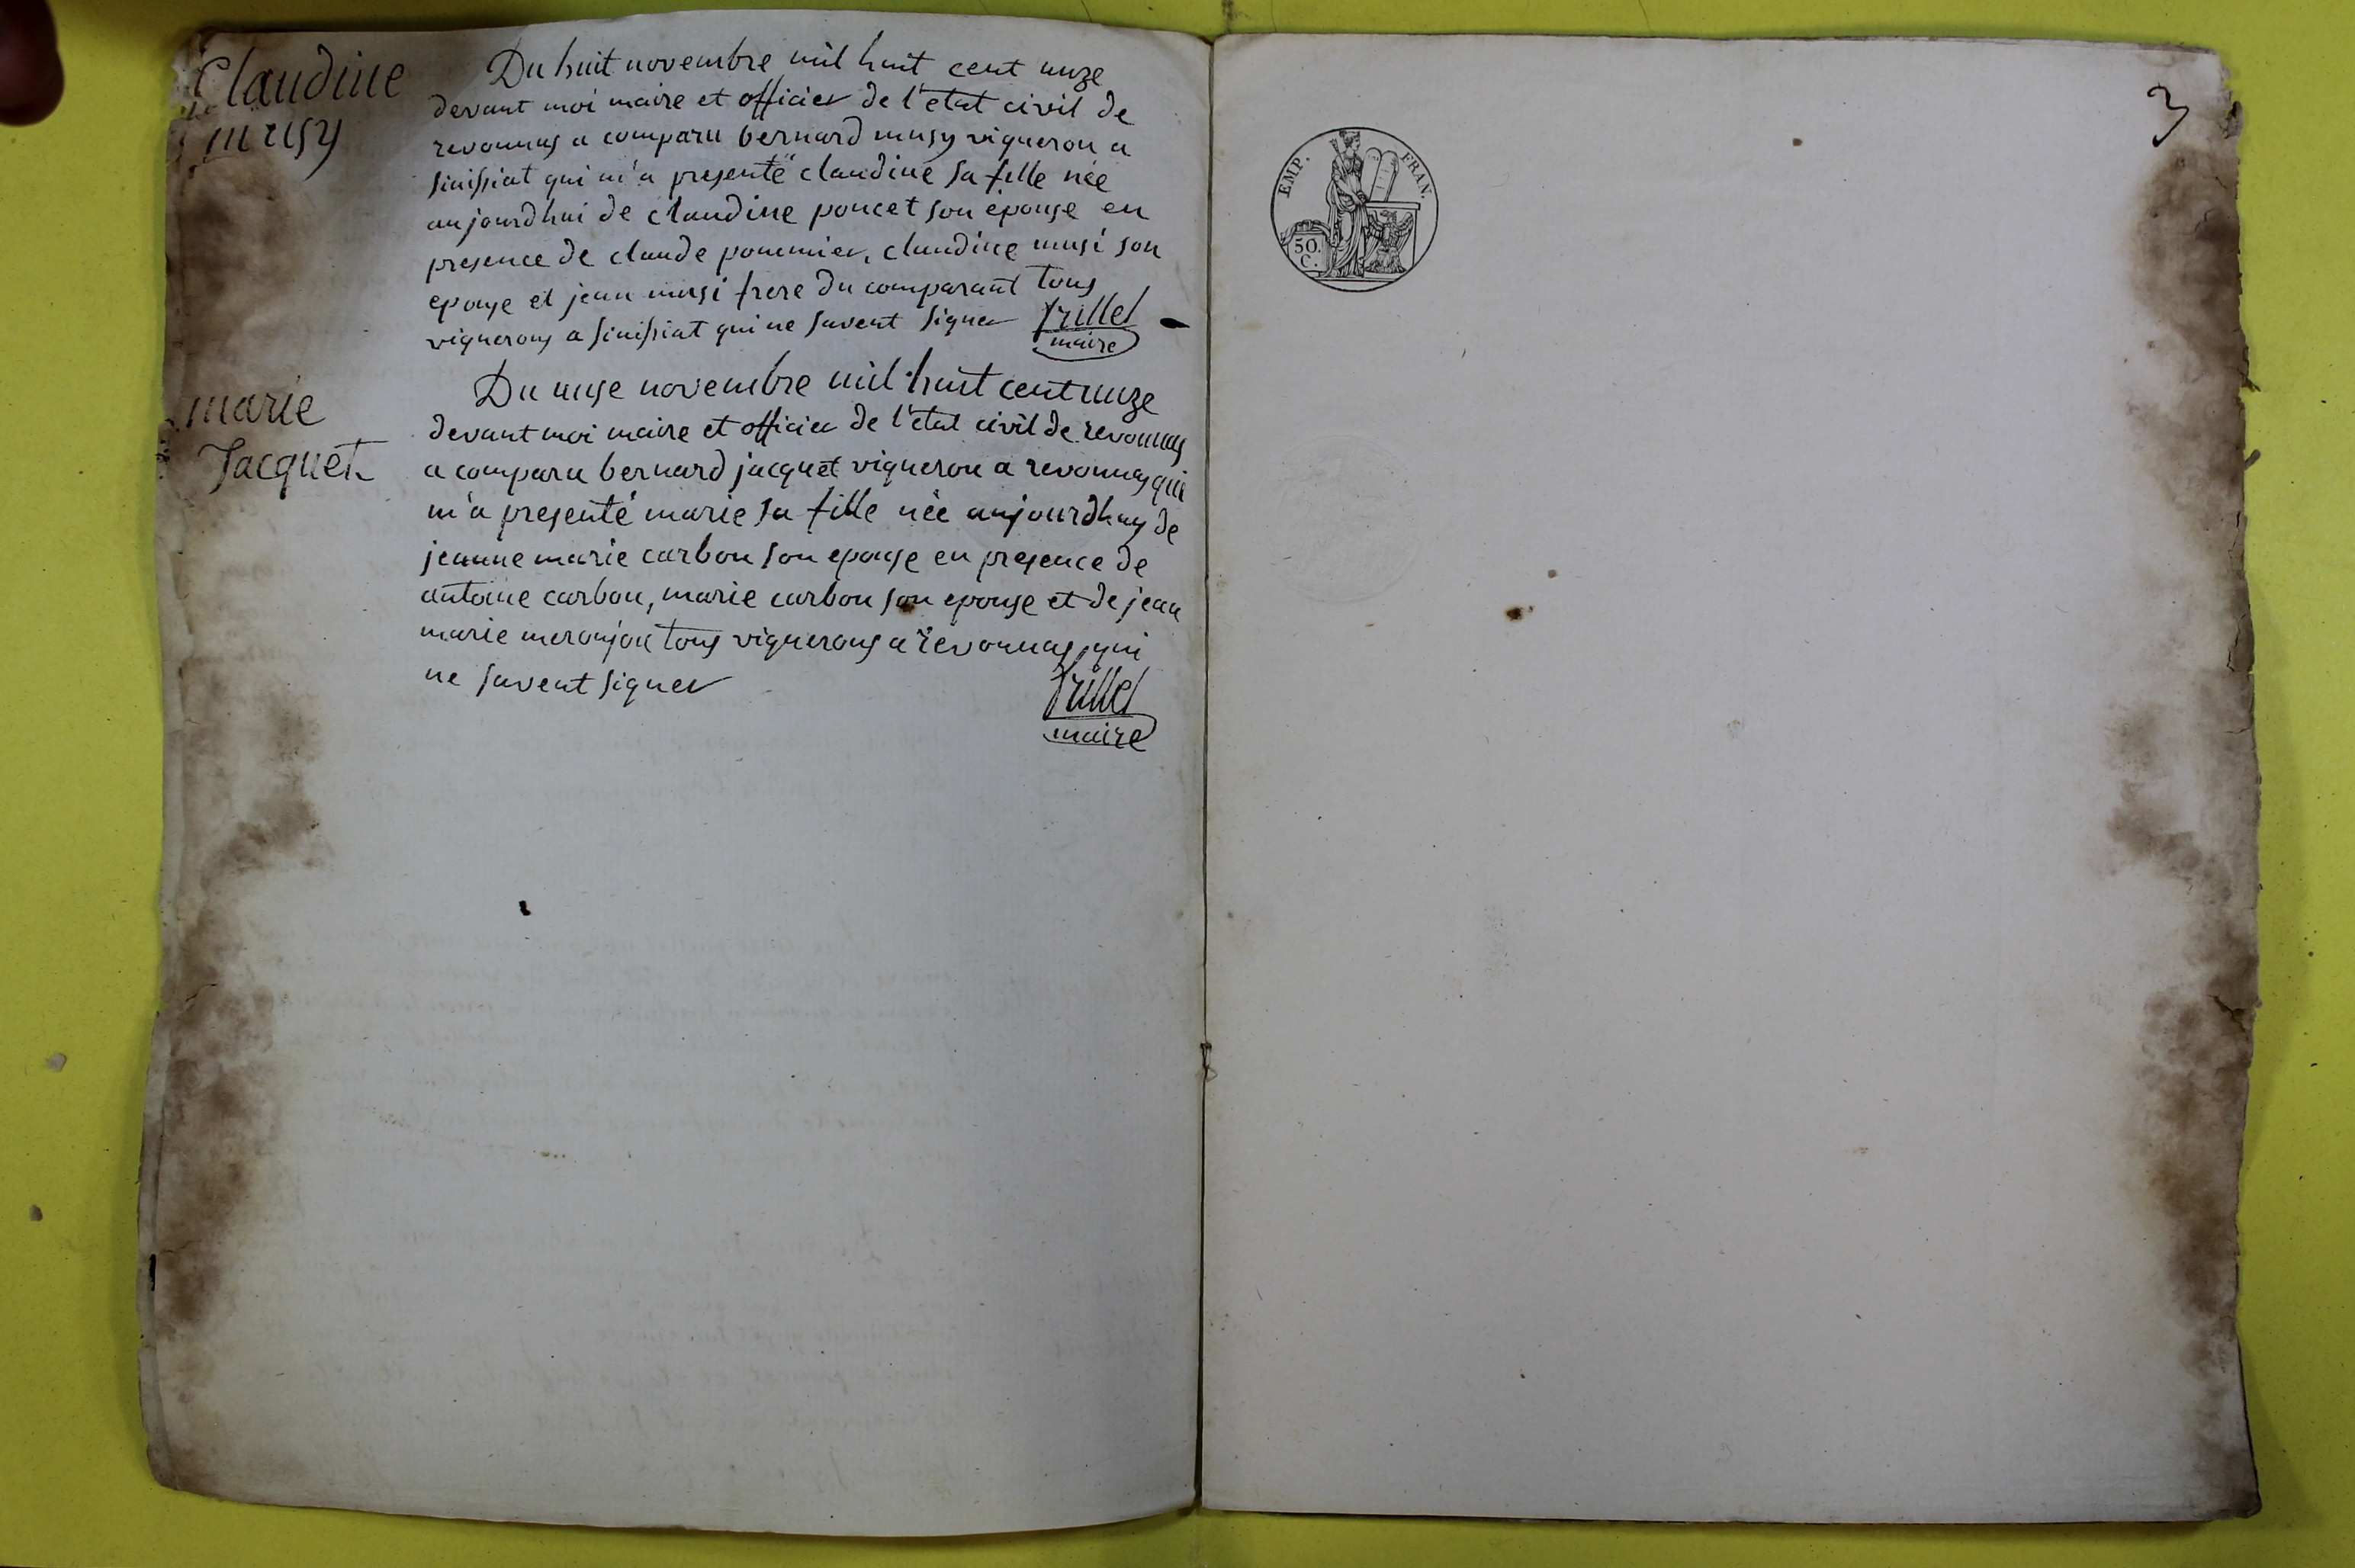 Claudine
musy
Du huit novembre mil huit cent unze
devant moi maire et officier de l'etat civil de
revonnas a comparu bernard musy vigneron a
sinissiat qui m'a presenté claudine sa fille née
aujourdhui de claudine poncet son épouse en
presence de claude pommier, claudine musi son
epouse et jean musi frere du comparant tous
vignerons a sinissiat qui ne savent signer
maire
marie
Jacquet
Du unse novembre mil huit cent unze
devant moi maire et officier de l'etat civil de revonnas
a comparu bernard jacquet vigneron a revonnas qui
m'a presenté marie sa fille née aujourdhuy de
jeanne marie carbon son epouse en presence de
antoine carbon, marie carbon son epouse et de jean
marie meronjon tous vignerons a revonnas qui
ne savent signer
maire
EMP. FRAN.
50.
C.
3